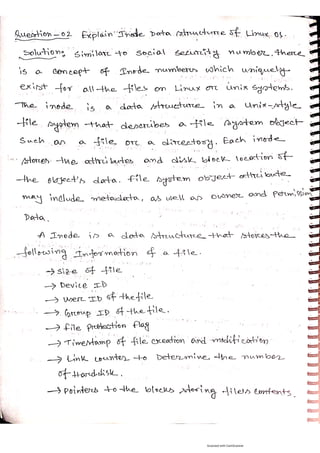 Question-02 Explain Inode Data structure of Linux OS.
Solution: Similar to Social Security number, there
is a concept of Inode numbers which uniquely
exist for all the files on Linux or Unix Systems.
The inode is a data structure in a Unix-style
file system that describes a file system object
Such as a file or a directory. Each inode
stores the attributes and disk block location of
the object's data. File system object attribute
may include metadata, as well as owner and permission
Data.
A Inode is a data structure that stores the
following Information of a file.
→ Size of file
→ Device ID
→ User ID of the file
→ Group ID of the file.
→ File Protection flag
→ Timestamp of file creation and modification
→ Link counter to Determine the number
of Hard disk.
→ Pointers to the blocks storing file's contents.
Scanned with CamScanner